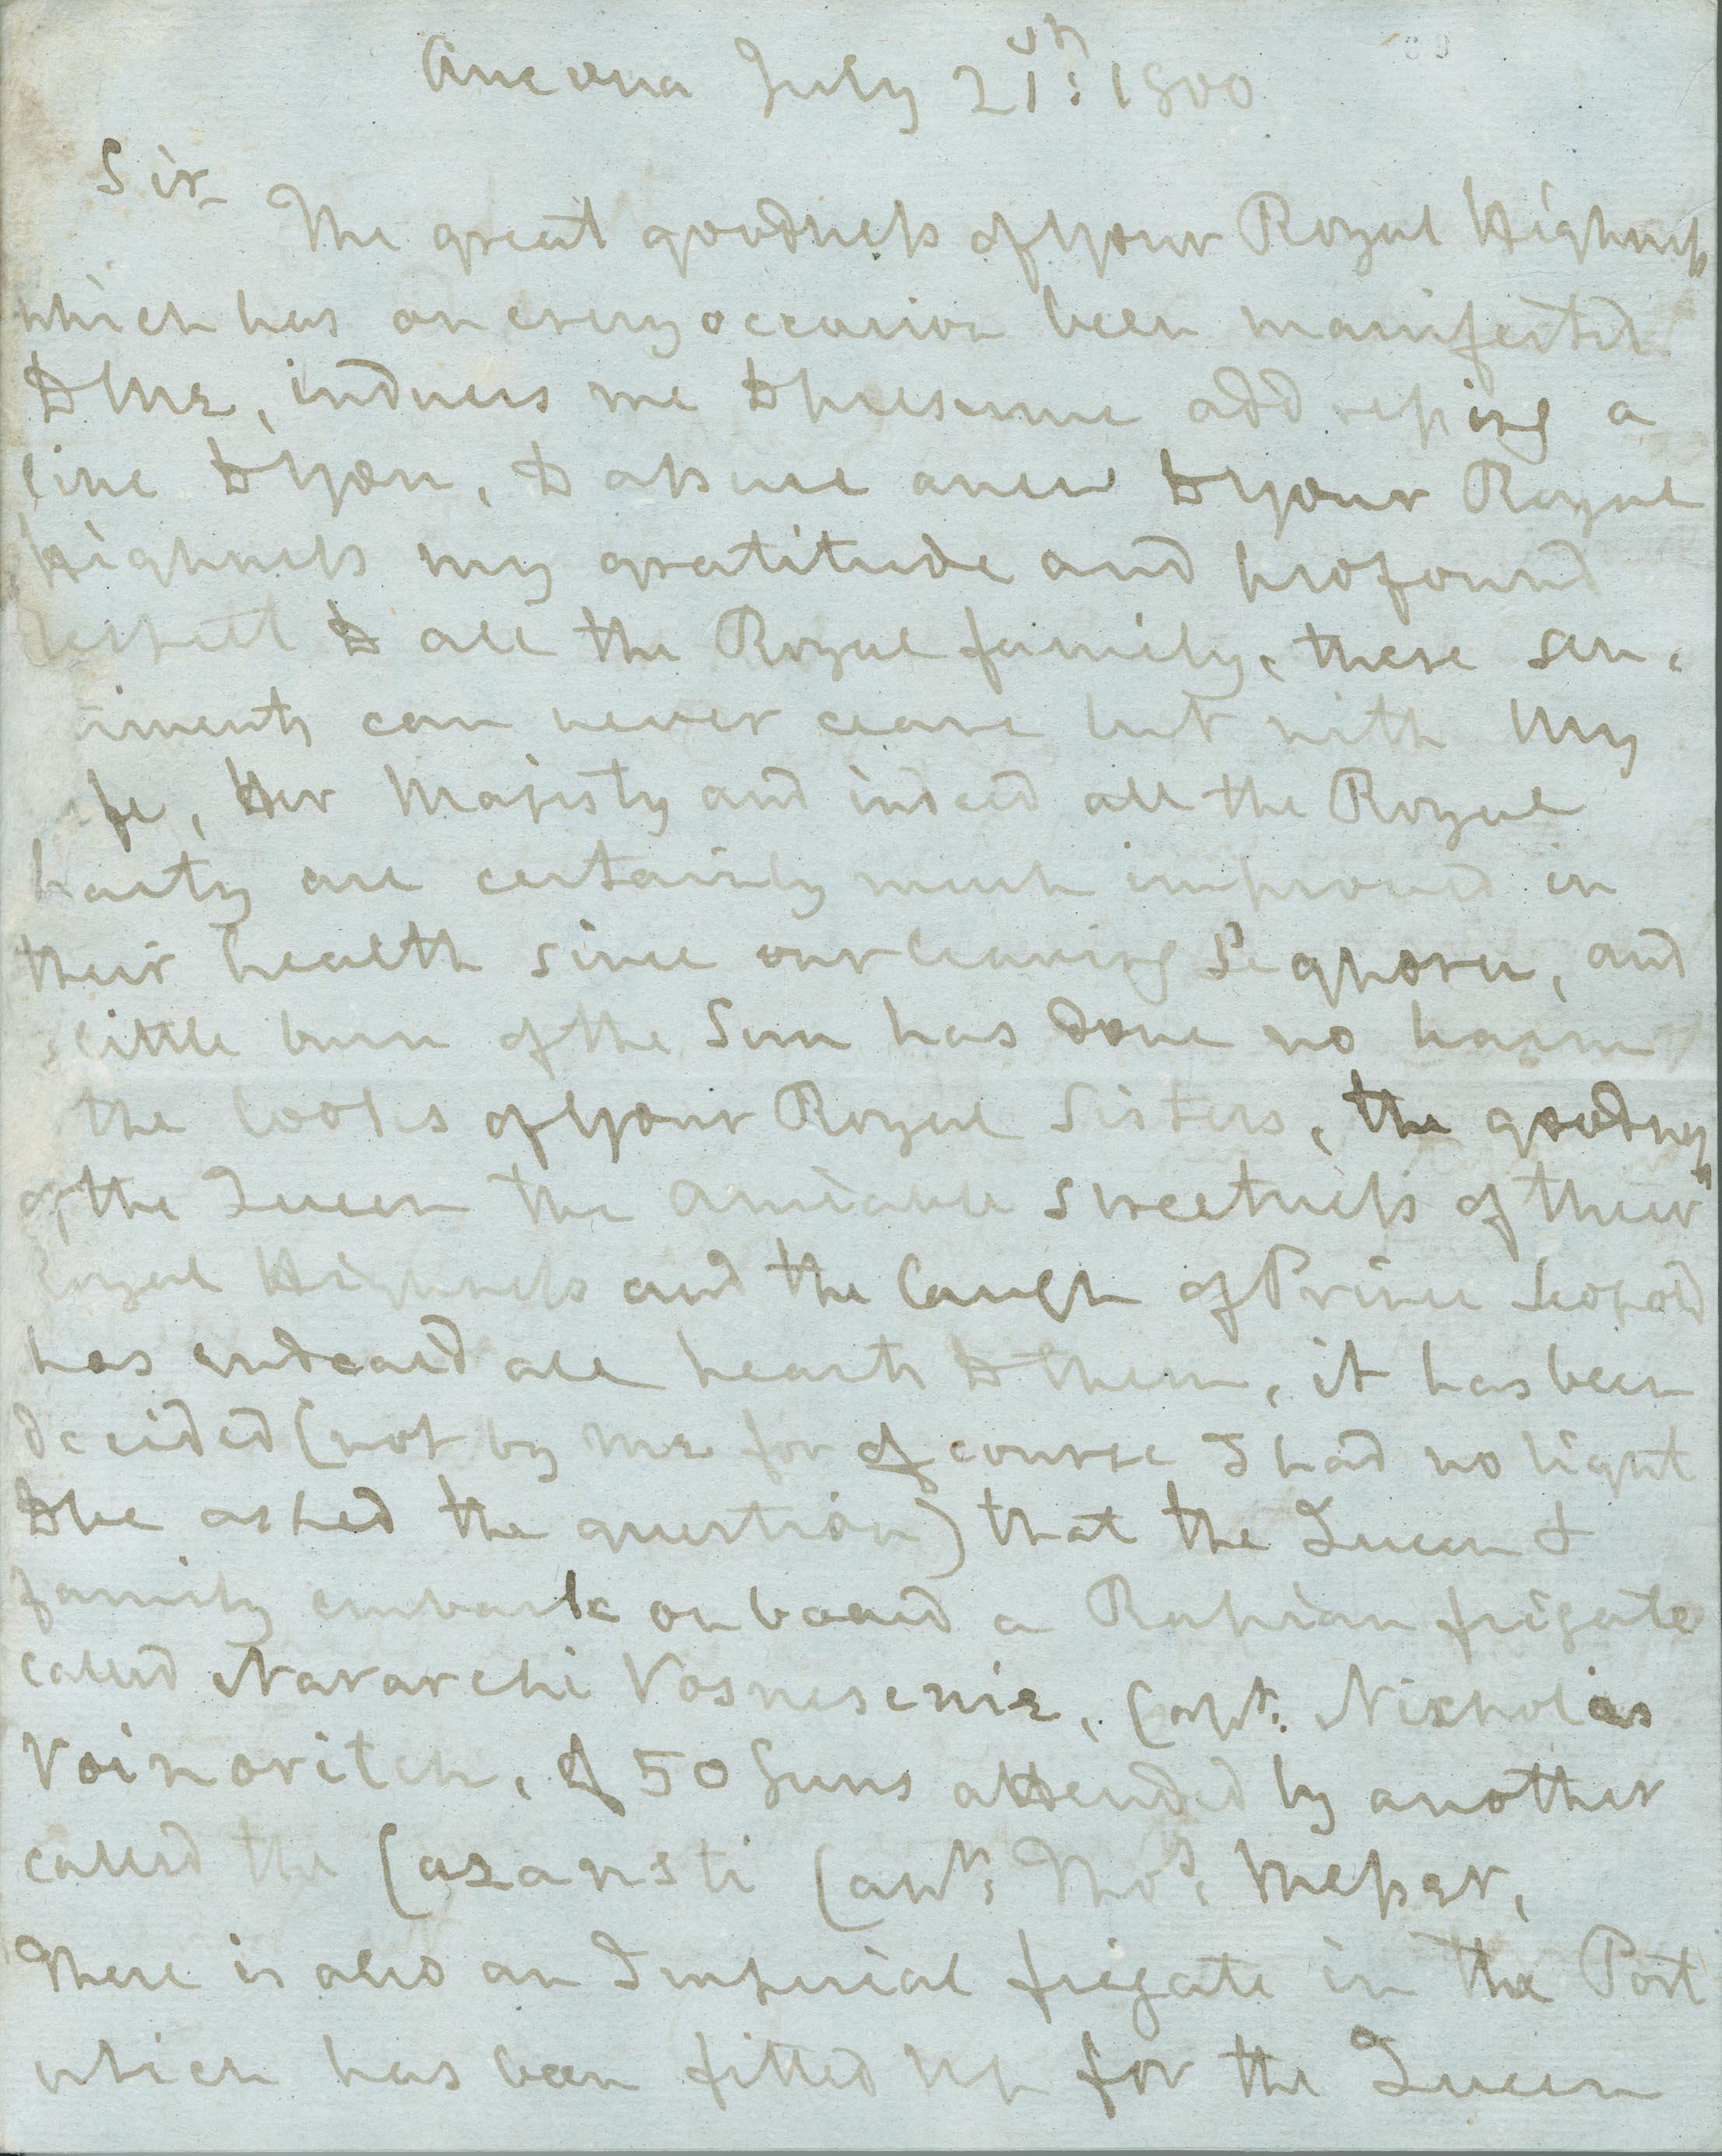 Ancona July 21st: 1800
Sir
The great goodness of Your Royal Highness
which has on every occasion been manifested
to Me, induces me to presume addressing a
line to You, to assure anew to Your Royal
Highness my gratitude and profound
respect to all the Royal family, these sen,
timents can never cease but with My
fe, Her Majesty and indeed all the Royal
party are certainly much improved in
their health since our leaving Leghorn, and
little burn of the Sun has done no harm
the looks of Your Royal Sisters, the goodness
of the Queen the amiable sweetness of their
Royal Highness and the laugh of Prince Leopold
has endeard all hearts to them, it has been
decided (not by me for of course I had no right
to be asked the question) that the Queen &
family embark on board a Russian frigate
called Navarchi Vosnesenie, Capt: Nicholas
Voinovitch, of 50 Guns attended by another
called the Cazansti Capt: Thos: Messer,
There is also an Imperial frigate in the Port
which has been fitted up for the Queen